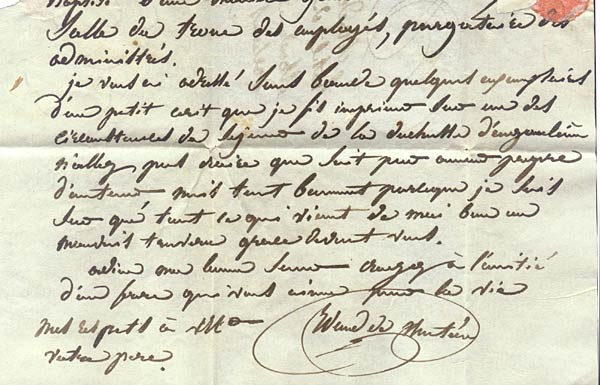 Salle du trône des employés, purgatoire des
administrés.
je vous ai adressé sous bande quelques exemplaires
d'un petit écrit que je fis imprimer sur une des
circonstances du séjour de la duchesse d'angoulême
n'allez pas croire que soit par amour propre
d'auteur mais tout bonnement parceque je suis
sur que tout ce qui vient de moi bon ou
mauvais trouvera grace devant vous.
adieu ma bonne soeur croyez à l'amitié
d'un frere qui vous aime pour la vie
mes respects à
votre pere.